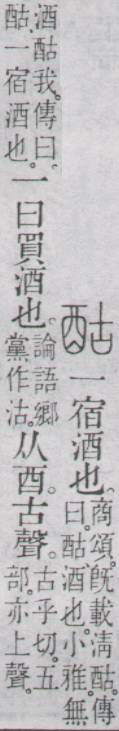 酤 一宿酒也。
商頌。旣載淸酤。傳
曰。酤酒也。小雅。無
酒酤我。傳曰。
酤、一宿酒也。
一曰買酒也。
論語鄉
黨作沽。
从酉。古聲。
古乎切。五
部。亦上聲。